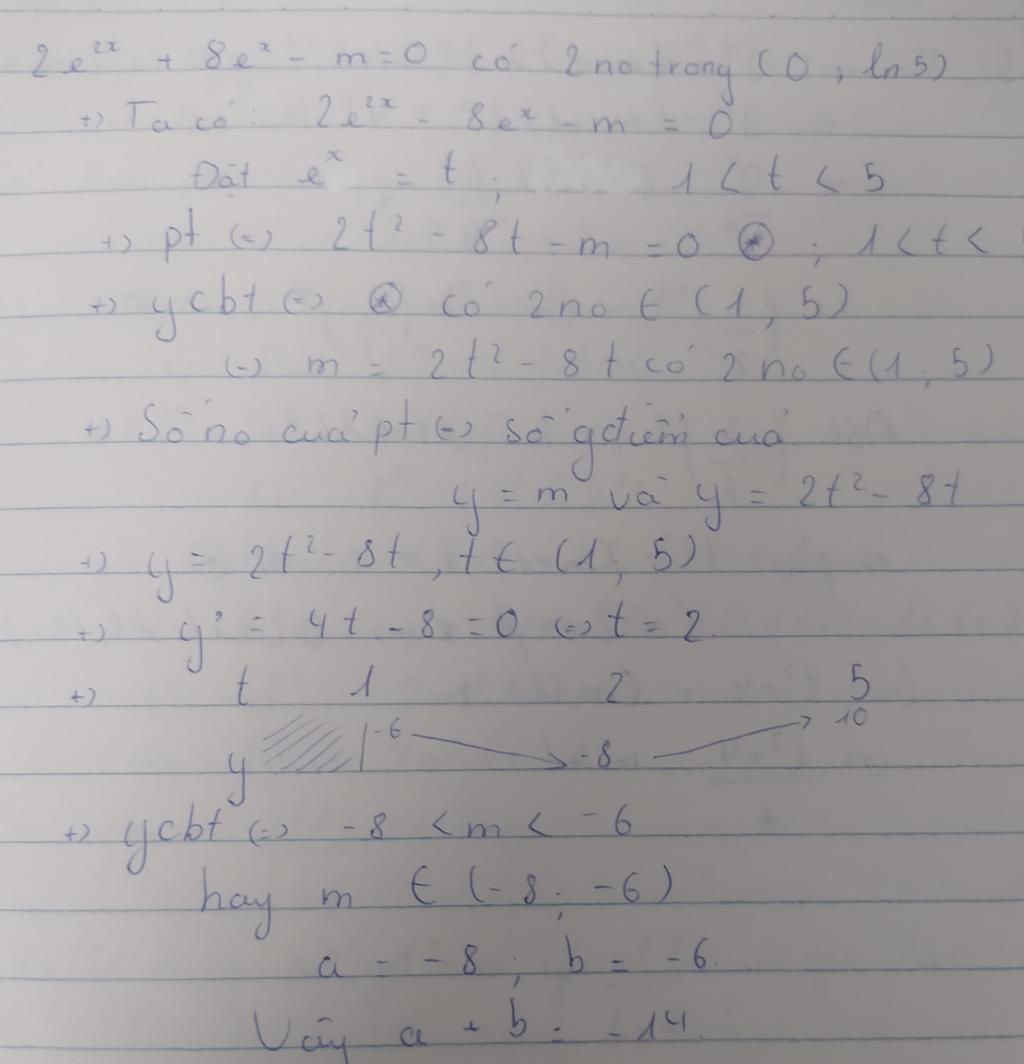 2e²ˣ + 8eˣ - m = 0 có 2 no trong (0 ; ln5)
+) Ta có : 2e²ˣ - 8eˣ - m = 0
Đặt eˣ = t ; 1 < t < 5
+) pt (=) 2t² - 8t - m = 0 ⊛ ; 1 < t <
+) ycbt (=) ⊛ có 2 no ∈ (1 ; 5)
(=) m = 2t² - 8t có 2 no ∈ (1 ; 5)
+) Số no của pt (=) số gđiểm của
y = m và y = 2t² - 8t
+) y = 2t² - 8t , t ∈ (1 ; 5)
+) y' = 4t - 8 = 0 (=) t = 2.
+) t 1 2 5
y -6 -8 10
+) ycbt (=) -8 < m < -6
hay m ∈ (-8 ; -6)
a = -8 ; b = -6.
Vậy a + b = -14.